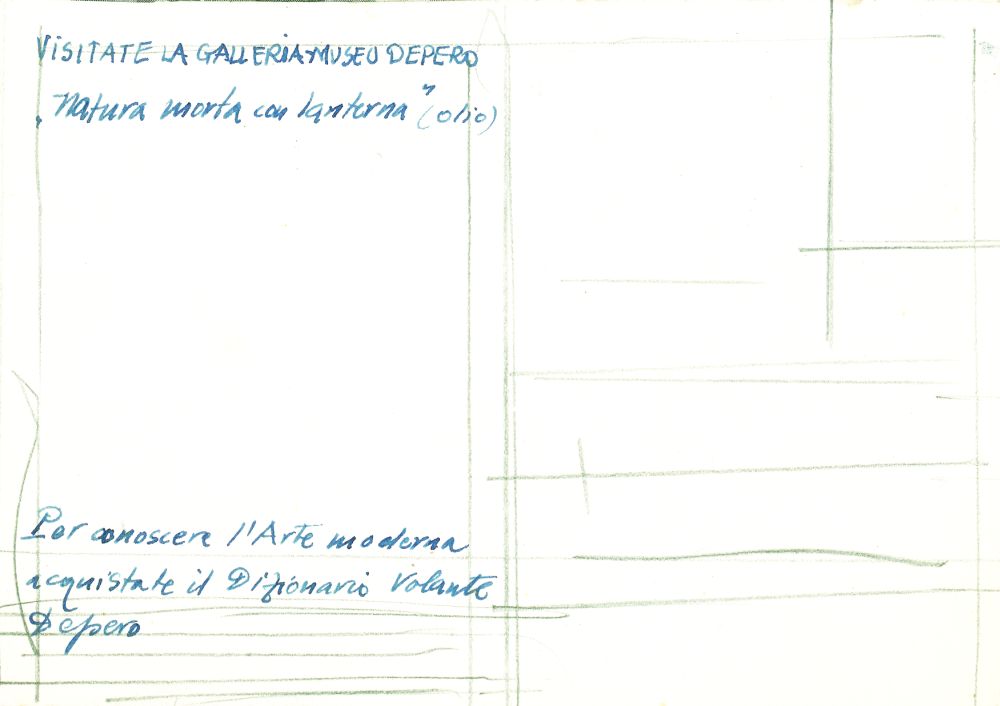 VISITATE LA GALLERIA-MUSEO DEPERO
„Natura morta con lanterna" (olio)
Per conoscere l'Arte moderna
acquistate il Dizionario Volante
Depero